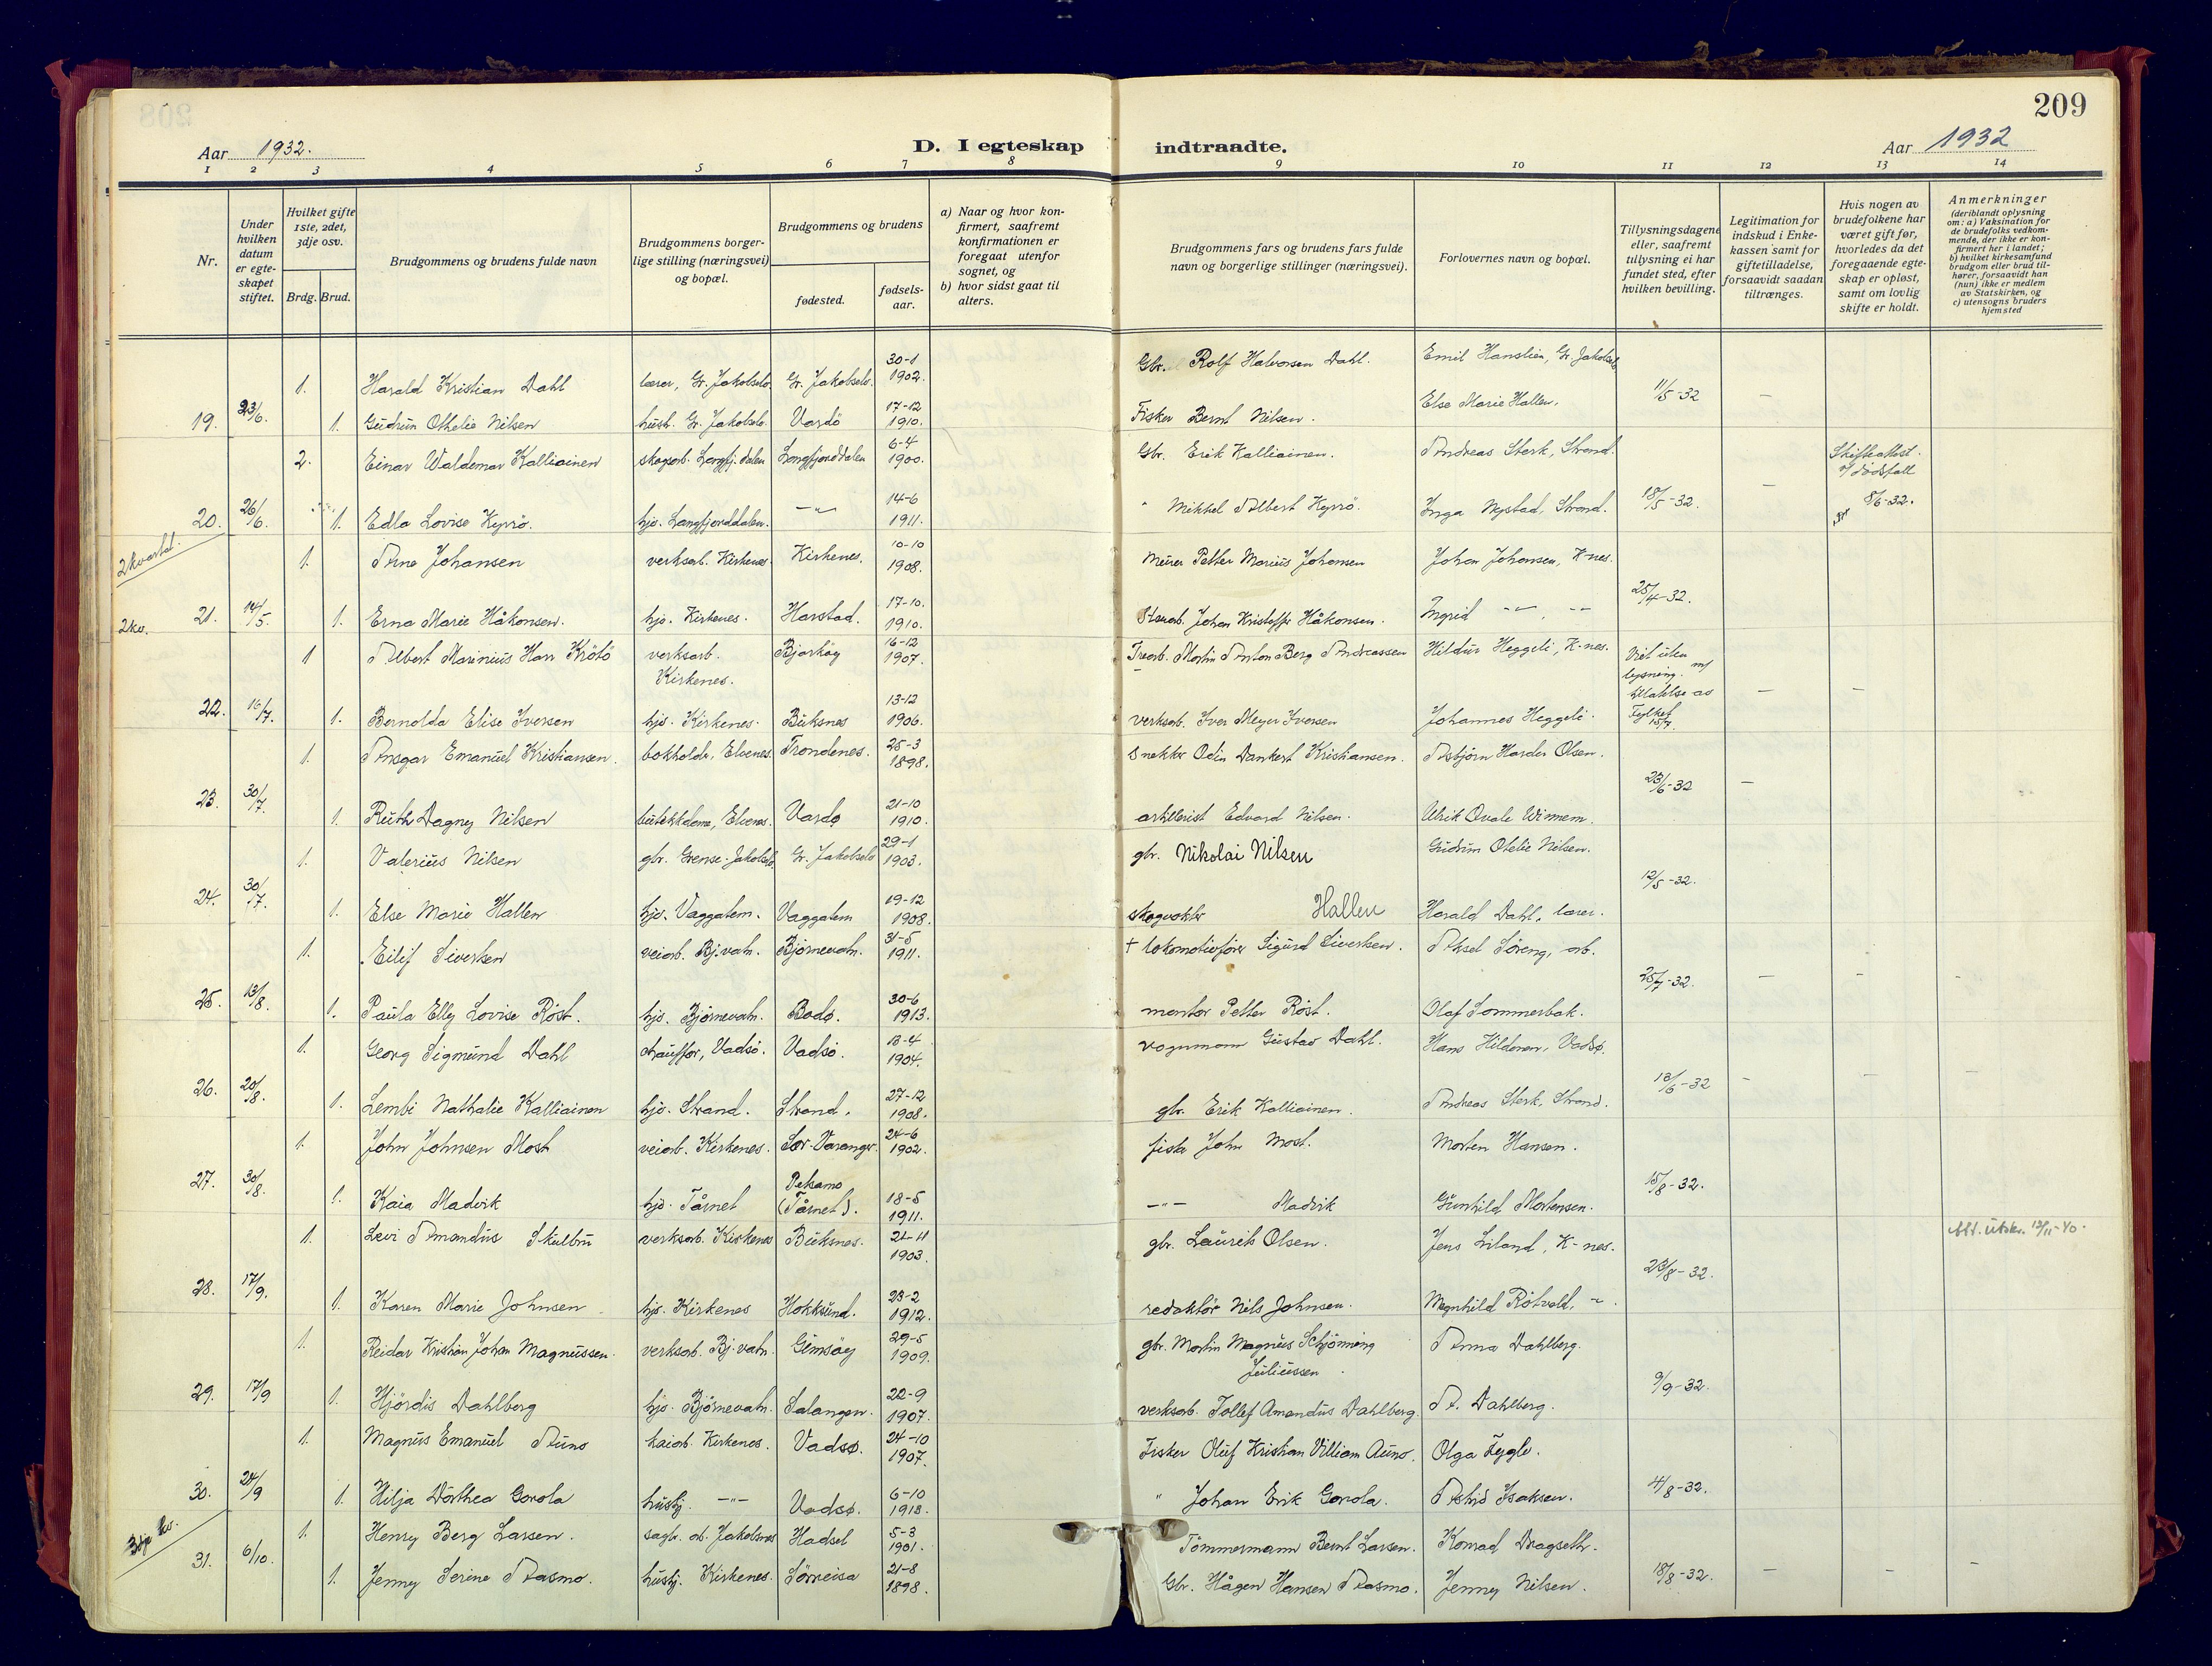 209
Aar 1932.
D. I egteskap indtraadte.
Aar 1932
1 2 3 4 5 6 7 8 9 10 11 12 13 14
Nr.
Under hvilken datum er egteskapet stiftet.
Hvilket gifte 1ste, 2det, 3dje osv.
Brdg. Brud.
Brudgommens og brudens fulde navn
Brudgommens borgerlige stilling (næringsvei) og bopæl.
Brudgommens og brudens
fødested.
fødselsaar.
a) Naar og hvor konfirmert, saafremt konfirmationen er foregaat utenfor sognet, og
b) hvor sidst gaat til alters.
Brudgommens fars og brudens fars fulde navn og borgerlige stillinger (næringsvei).
Forlovernes navn og bopæl.
Tillysningsdagene eller, saafremt tillysning ei har fundet sted, efter hvilken bevilling.
Legitimation for indskud i Enkekassen samt for giftetilladelse, forsaavidt saadan tiltrænges.
Hvis nogen av brudefolkene har været gift før, hvorledes da det foregaaende egteskap er opløst, samt om lovlig skifte er holdt.
Anmerkninger
(deriblandt oplysning om: a) Vaksination for de brudefolks vedkommende, der ikke er konfirmert her i landet; b) hvilket kirkesamfund brudgom eller brud tilhører, forsaavidt han (hun) ikke er medlem av Statskirken, og c) utensogns bruders hjemsted
1. Harald Kristian Dahl lærer, Gr. Jakobselv. Gr. Jakobselv. 30-1 1902. Gbr. Rolf Halvorsen Dahl. Emil Hanslien, Gr. Jakobselv
19. 23/6. 1. Gudrun Othelie Nilsen hush. Gr. Jakobselv. Vardö 17-12 1910. Fisker Bernt Nilsen. Else Marie Hallen. 11/5-32 –
2. Einar Waldemar Kalliainen skogsarb. Langfj.dalen Langfjorddalen 6-4 1900. Gbr. Erik Kalliainen. Andreas Sterk, Strand. Skifteattest. v/ dødsfall
20. 26/6. 1. Edla Lovise Kyrö. hjv. Langfjorddalen. –"– 14-6 1911. " Mikkel Albert Kyrö. Inga Nystad, Strand. 18/5-32. – 8/6-32.
2 kvartal.
1. Arne Johansen verksarb. Kirkenes. Kirkenes. 10-10 1908. Murer Petter Marius Johansen Johan Johansen, K-nes.
2 kv. 21. 14/5. 1. Erna Marie Håkonsen. hjv. Kirkenes. Harstad. 17-10. 1910. Johan Kristoffer Håkonsen. Ingrid –"– –"– 25/4-32.
1 Albert Marinius Harr Krötö verksarb. Kirkenes. Bjarköy 16-12 1907. Trearb. Martin Anton Berg Andreassen Hildur Heggeli, K-nes. Viet uten lysning. m/ tillatelse av Fylket 15/7.
22. 16/7. 1. Bernolda Elise Iversen hjv. Kirkenes. Buksnes 13-12 1906. verksarb. Iver Meyer Iversen Johannes Heggeli. – –
1. Ansgar Emanuel Kristiansen. bokholder, Elvenes. Trondenes. 25-3 1898. Snekker Odin Dankert Kristiansen. Asbjörn Harder Olsen.
23. 30/7. 1. Ruth Dagny Nilsen butikkdame, Elvenes. Vardø 21-10 1910. artillerist Edvard Nilsen. Ulrik Ovale Winnem. 23/6-32 –
1. Valerius Nilsen gbr. Grense-Jakobselv, Gr. Jakobselv 29-1 1903. gbr. Nikolai Nilsen Gudrun Otelie Nilsen.
24. 30/7. 1. Else Marie Hallen hjv. Vaggatem. Vaggatem 19-12 1908. skogvokter Hallen Harald Dahl, lærer. 12/5-32.
1. Eilif Sivertsen veiarb. Bj.vatn. Bjørnevatn. 31-5 1911. † lokomotivfører Sigurd Sivertsen. Aksel Söreng, arb.
25. 13/8. 1. Paula Elly Lovise Röst. hjv. Bjørnevatn. Bodø. 30-6 1913. montør Petter Röst. Olaf Sommerbak. 25/7-32. – – –
1. Georg Sigmund Dahl chauffør, Vadsö. Vadsö. 13-4 1904. vognmann Gustav Dahl. Hans Hildonen, Vadsø.
26. 20/8. 1. Lembi Nathalie Kalliainen hjv. Strand. Strand. 27-12 1908. gbr. Erik Kalliainen. Andreas Sterk, Strand. 13/6-32 – – –
1. John Johnsen Most veiarb. Kirkenes. Sør-Varanger. 24-6 1902. fisker John Most. Morten Hansen.
27. 30/8. 1. Kaia Madvik hjv. Tårnet Petsamo (Tårnet). 18-5 1911. –"– Madvik Gunhild Mortensen. 15/8-32.
1. Levi Amandus Skulbru verksarb. Kirkenes Buksnes. 21-11 1903. gbr. Laurits Olsen. Jens Liland, K-nes. Att. utskr. 13/11-40.
28. 17/9. 1. Karen Marie Johnsen hjv. Kirkenes Hokksund. 23-2 1912. redaktör Nils Johnsen. Magnhild Rötvold, –"–. 23/8-32.
1. Reidar Kristian Johan Magnussen. verksarb. Bj.vatn. Gimsöy 29-5 1909. gbr. Martin Magnus Schjönning Juliussen Anna Dahlberg.
29. 17/9 1. Hjördis Dahlberg hjv. Bjørnevatn. Salangen. 22-9 1907. verksarb. Tollef Amandus Dahlberg. A. Dahlberg. 9/9-32.
1. Magnus Emanuel Auno kaiarb. Kirkenes. Vadsø. 24-10 1907. Fisker Oluf Kristian Villiam Auno. Olga Fygle.
30. 24/9 1. Hilja Dorthea Gorola hushj. –"– Vadsø. 6-10 1913. " Johan Erik Gorola. Astrid Isaksen. 4/8-32.
3dje kv.
1. Henry Berg Larsen. sagbr. arb. Jakobsnes Hadsel 5-3 1901. Tömmermann Bernt Larsen. Konrad Dragseth.
31. 6/10. 1. Jenny Serine Aasmo. hushj. Kirkenes. Sörreisa 21-8 1898. Gbr. Hågen Hansen Aasmo. Jenny Nilsen. 18/8-32. – – –